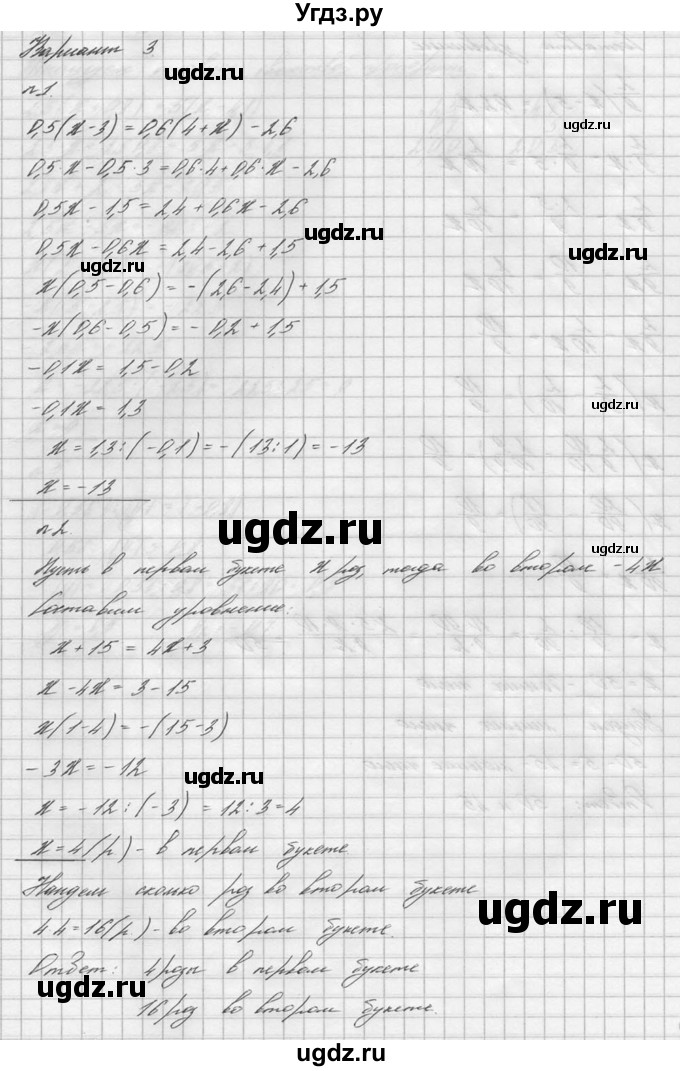 Угдз.ру
Вариант 3
ugdz.ru
№1.
0,5(x-3)=0,6(4+x)-2,6
ugdz.ru
0,5·x-0,5·3=0,6·4+0,6·x-2,6
0,5x-1,5=2,4+0,6x-2,6
ugdz.ru
0,5x-0,6x=2,4-2,6+1,5
ugdz.ru
ugdz.ru
x(0,5-0,6)=-(2,6-2,4)+1,5
-x(0,6-0,5)=-0,2+1,5
-0,1x=1,5-0,2
-0,1x=1,3
ugdz.ru
x=1,3:(-0,1)=-(13:1)=-13
x=-13
№2.
ugdz.ru
ugdz.ru
Пусть в первом букете x роз, тогда во втором -4x
Составим уравнение:
x+15=4x+3
x-4x=3-15
x(1-4)=-(15-3)
-3x=-12
ugdz.ru
x=-12:(-3)=12:3=4
x=4(р)-в первом букете
Найдем сколько роз во втором букете
ugdz.ru
4·4=16(р)-во втором букете.
Ответ: 4розы в первом букете
ugdz.ru
16роз во втором букете.
ugdz.ru